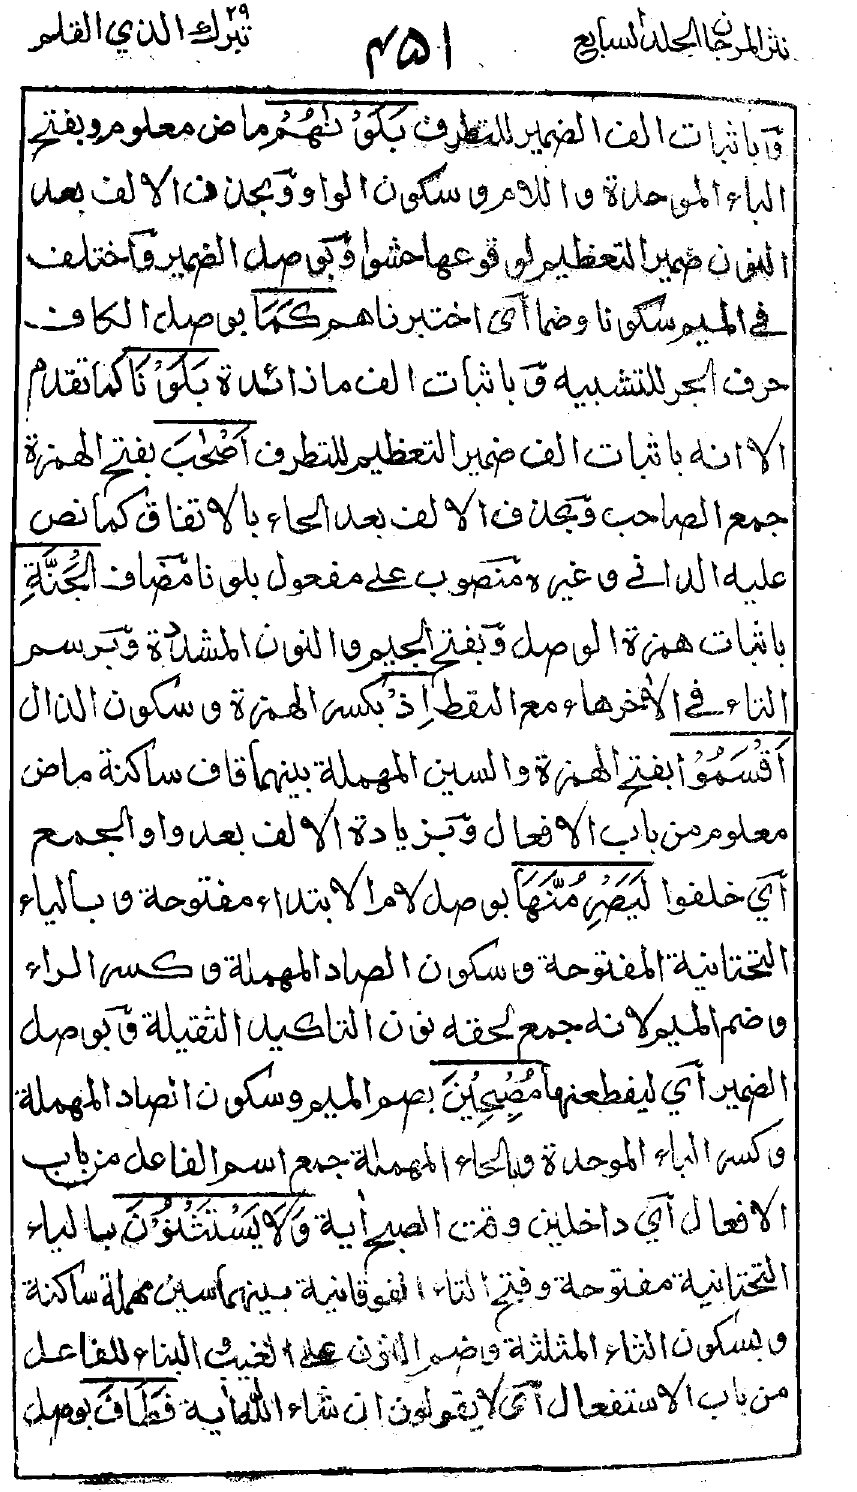 نثر المرجان الجلد السابع
٤٥١
تبرك الذي ٢٩ القلم
وَبا ثبات الف الضمير للتطرف بَلَوْنٰهُمْ ماض معلوم وبفتح
الباء الموحدة واللام وسكون الواو وَبحذف الالف بعد
النون ضمير التعظيم لوقوعها حشوا وَبوصل الضمير وَاختلف
في الميم سكونا وضما آي اختبرناهم كَمَا بوصل الكاف
حرف الجر للتشبيه وَبا ثبات الف ما زائدة بَلَوْنَا كما تقدم
الا انه با ثبات الف ضمير التعظيم للتطرف اَصْحٰبَ بفتح الهمزة
جمع الصاحب وَبحذف الالف بعد الحاء بالاتفاق كما نص
عليه الداني وغيره مَنصوب على مفعول بلونا مَضاف الْجَنَّةِ
باثبات همزة الوصل وَبفتح الجيم والنون المشددة وَبرسم
التاء في الآخر هاء مع النقط اِذْ بكسر الهمزة وسكون الذال
اَقْسَمُوْا بفتح الهمزة والسين المهملة بينهما قاف ساكنة ماض
معلوم من باب الافعال وَبزيادة الالف بعد واو الجمع
آي خلفوا لَيَصْرِمُنَّهَا بوصل لام الابتداء مفتوحة وبالياء
التحتانية المفتوحة وسكون الصاد المهملة وكسر الراء
وضم الميم لانه جمع لحقه نون التاكيد الثقيلة وَبوصل
الضمير آي ليقطعنها مُصْبِحِيْنَ بضم الميم وسكون الصاد المهملة
وكسر الباء الموحدة وبالحاء المهملة جمع اسم الفاعل من باب
الافعال آي داخلين وقت الصبح اٰية وَلَا يَسْتَثْنُوْنَ بالياء
التحتانية مفتوحة وفتح التاء الفوقانية بينهما سين مهملة ساكنة
وبسكون الثاء المثلثة وضم النون على الغيب والبناء للفاعل
من باب الاستفعال آي لا يقولون ان شاء الله اٰية فَطَافَ بوصل